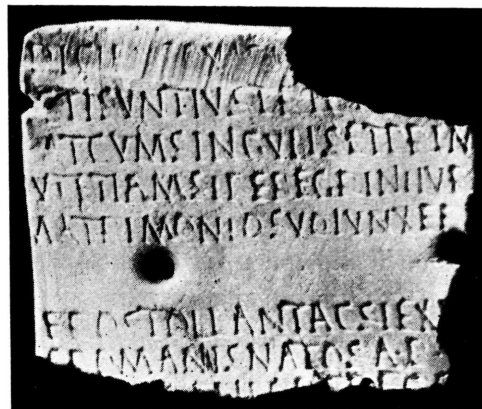 CTI SVNT IVS TRI
AT CVM SINGVLIS ET PRIM
VT ETIAM SI PEREGRINI IVR
MATRIMONIO SVO IVNXER
EROS TOLLANT AC SI EX
S ROMANIS NATOS A